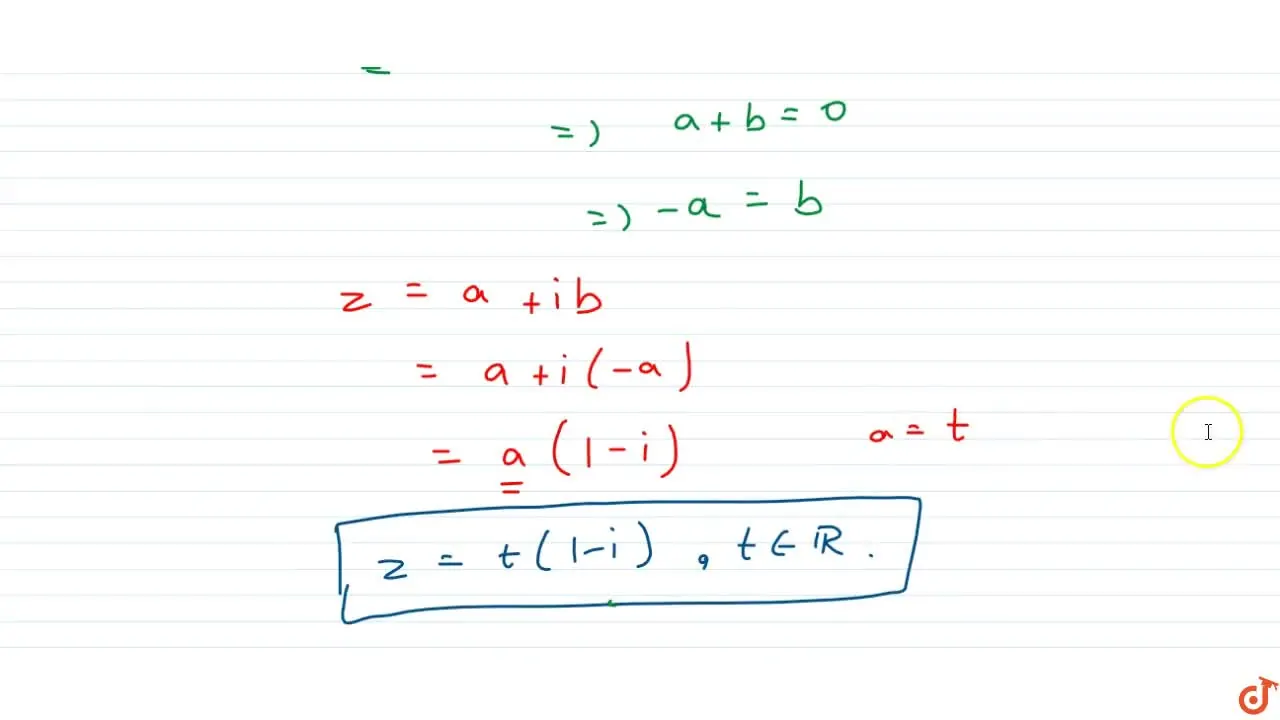 =
=) a + b = 0
=) - a = b
z = a + i b
= a + i ( - a )
= a ( 1 - i ) a = t
z = t ( 1 - i ) , t ∈ ℝ .